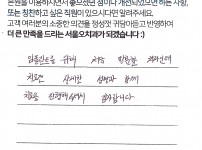 본원을 이용하시면서 좋았던 점이나 개선되었으면 하는 사항,
또는 칭찬하고 싶은 직원이 있으시다면 알려주세요.
고객 여러분의 소중한 의견을 정성껏 귀담아듣고 반영하여
더 큰 만족을 드리는 서울오치과가 되겠습니다 :)
임플란트를
치료면 상세한 설명과 함께
치료를 진행해 주셔서 감사합니다